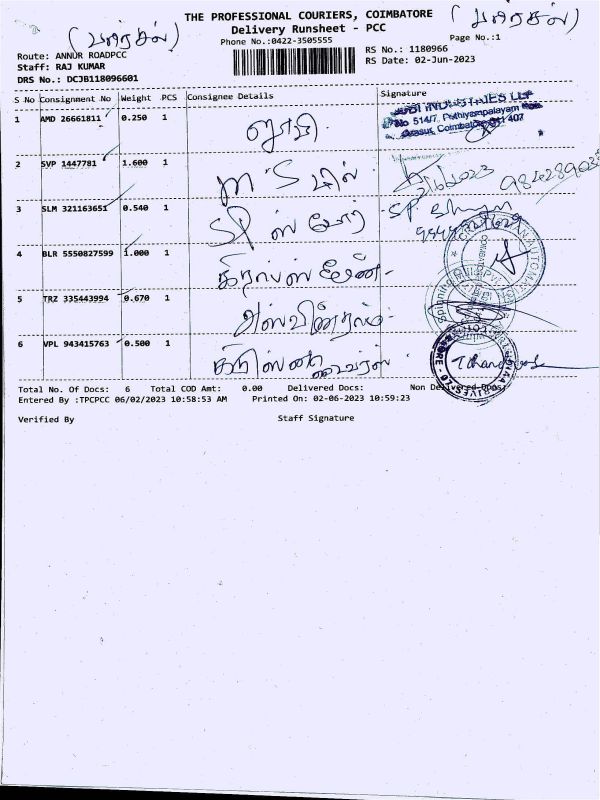 THE PROFESSIONAL COURIERS, COIMBATORE
Delivery Runsheet - PCC
Phone No.:0422-3505555
Page No.:1
Route: ANNUR ROADPCC
Staff: RAJ KUMAR
DRS No.: DCJB118096601
RS No.: 1180966
RS Date: 02-Jun-2023
S No Consignment No Weight PCS Consignee Details Signature
1 AMD 26661811 0.250 1
No 514/7, Pethiyampalayam
Arasur, Coimbatore 641 407
2 SVP 1447781 1.600 1
3 SLM 321163651 0.540 1 SP ஸ்டோர்
4 BLR 5550827599 1.000 1
5 TRZ 335443994 0.670 1
6 VPL 943415763 0.500 1
Total No. Of Docs: 6 Total COD Amt: 0.00 Delivered Docs: Non Delivered Docs:
Entered By :TPCPCC 06/02/2023 10:58:53 AM Printed On: 02-06-2023 10:59:23
Verified By Staff Signature